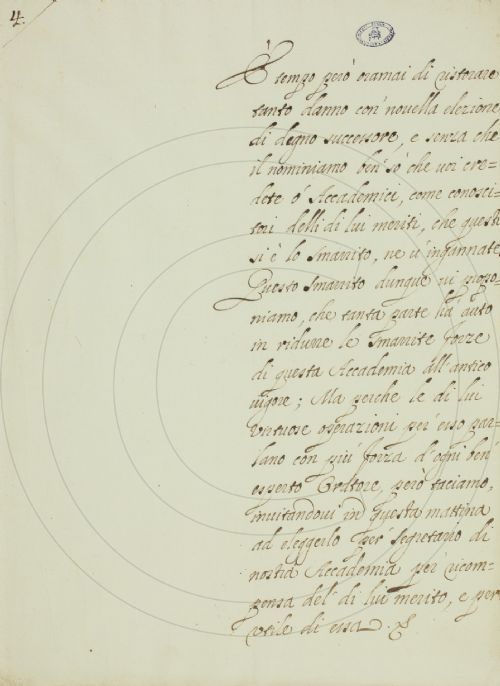 4.
È tempo però oramai di ristorare
tanto danno con' novella elezione
di degno successore, e senza che
il nominiamo ben' sò che voi cre=
dete ò Accademici, come conosci=
tori delli di lui meriti, che questi
si è lo Smarrito, ne v'ingannate,
Questo Smarrito dunque vi propo=
niamo, che tanta parte hà auto
in ridurre le smarrite forze
di questa Accademia all'antico
vigore; Ma perche le di lui
virtuose operazioni per' esso par=
lano con più forza d'ogni ben'
esperto Oratore, però taciamo,
invitandovi in questa mattina
ad eleggerlo per' segretario di
nostra Accademia per' ricom=
pensa del' di lui merito, e per
utile di essa.